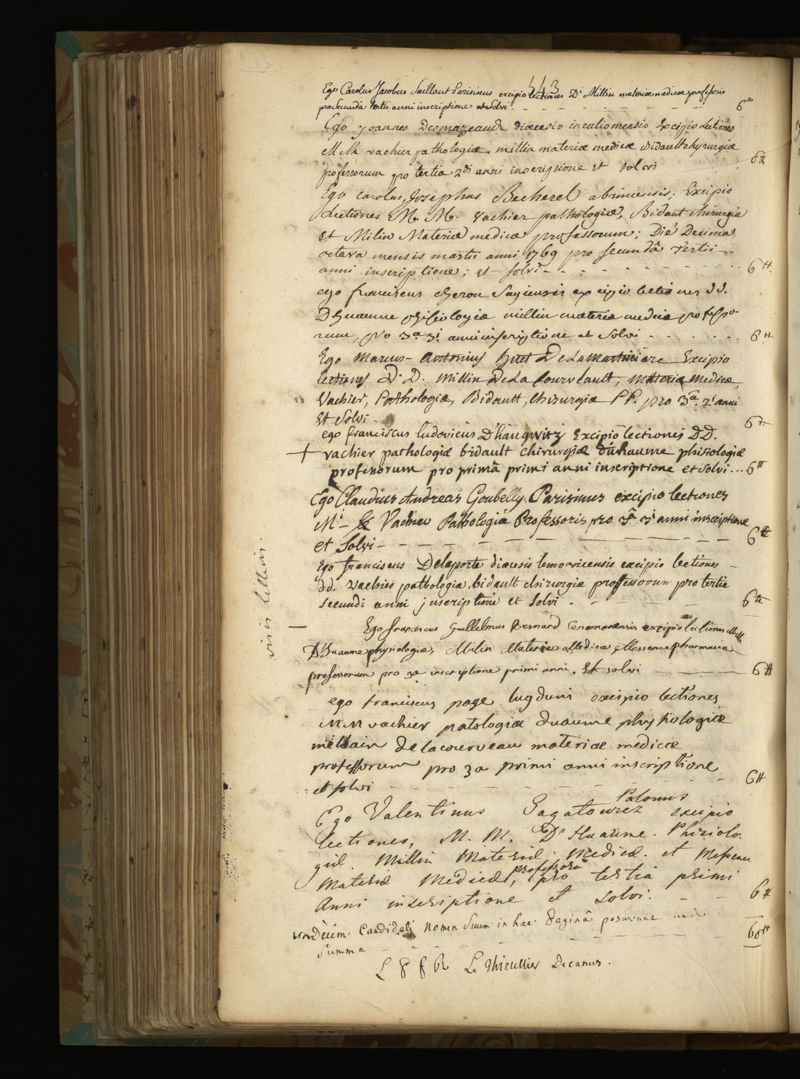 443
Ego Carolus Jacobus Saillant Parisinus excipio lectiones Di Millin materiae medicae professoris
pro secunda tertii anni inscriptione et solvi 6tt
Ego joannes Desmazeaud diocesio excipio lectiones
MM vachier pathologiae. millin materiae medicae Bidault chyrurgiae
professorum pro tertia 2di anni inscripsione et solvi 6tt
Ego carolus, Josephus Becherel abrincensis; Excipio
Lectiones M. M. Vachier pathologiae, Bidaut chirurgiae
Et Milin Materiae medicae professorum; Die Decima
octava mensis martii anni 1769 pro secundâ tertii
anni inscriptione; et solvi 6tt
ego franciscus cheron Sagiensis excipio lectiones dd.
Dhuaume phisiologiae millin materiae medicae professo-
rum, pro 3a 3i anni inscriptione et solvi 6tt
Ego Marcus-Antonius De La Martiniere Excipio
lectiones D.D. Millin De La Courvlault, materiae medicae,
Vachier, Pathologiae, Bidault, chirurgiae PP. pro 3a. 2i anni
Et Solvi 6tt
ego franciscus ludovicus D'haugwitz Excipio lectiones DD.
+ vachier pathologiae bidault chirurgiae duhaume phisiologiae
professorum pro primâ primi anni inscriptione et solvi... 6tt
Ego Claudius Andreas Goubelly Parisinus excipio lectiones
Mi Vachier Pathologiae Professoris pro 3â 3i anni inscriptione
et Solvi 6tt
Ego franciscus Delaporte diocesis lemovicensis excipio lectiones
dd. vachier pathologiae, bidault chirurgiae professorum pro tertia
secundi anni inscriptione et solvi 6tt
visis litteris.
Ego franciscus Guillelmus Bernard Cenomanensis excipio lectiones
D'huaume physiologiae, Milin Materiae Medicae pharmaciae
professorum pro 3a inscriptione primi anni. Et solvi 6tt
ego franciscus page lugduni excipio lectiones
MM vachier patologiae duaume phyhologiae
millain delacourveau materiae medicae
professorum pro 3a primi anni inscriptione
et solvi 6tt
Ego Valentinus Gagatowiez Polonus excipio
Lectiones, M. M. De Huaume. Phiziolo
giae. Millin Materiae Medicae. et
Materiae Medicae, professorum pro tertia primi
Anni inscriptione et solvi. 6tt
undecim Candidati Nomen suum in hac Paginâ posuerunt
Summa 66tt
Le Thieullier Decanus.